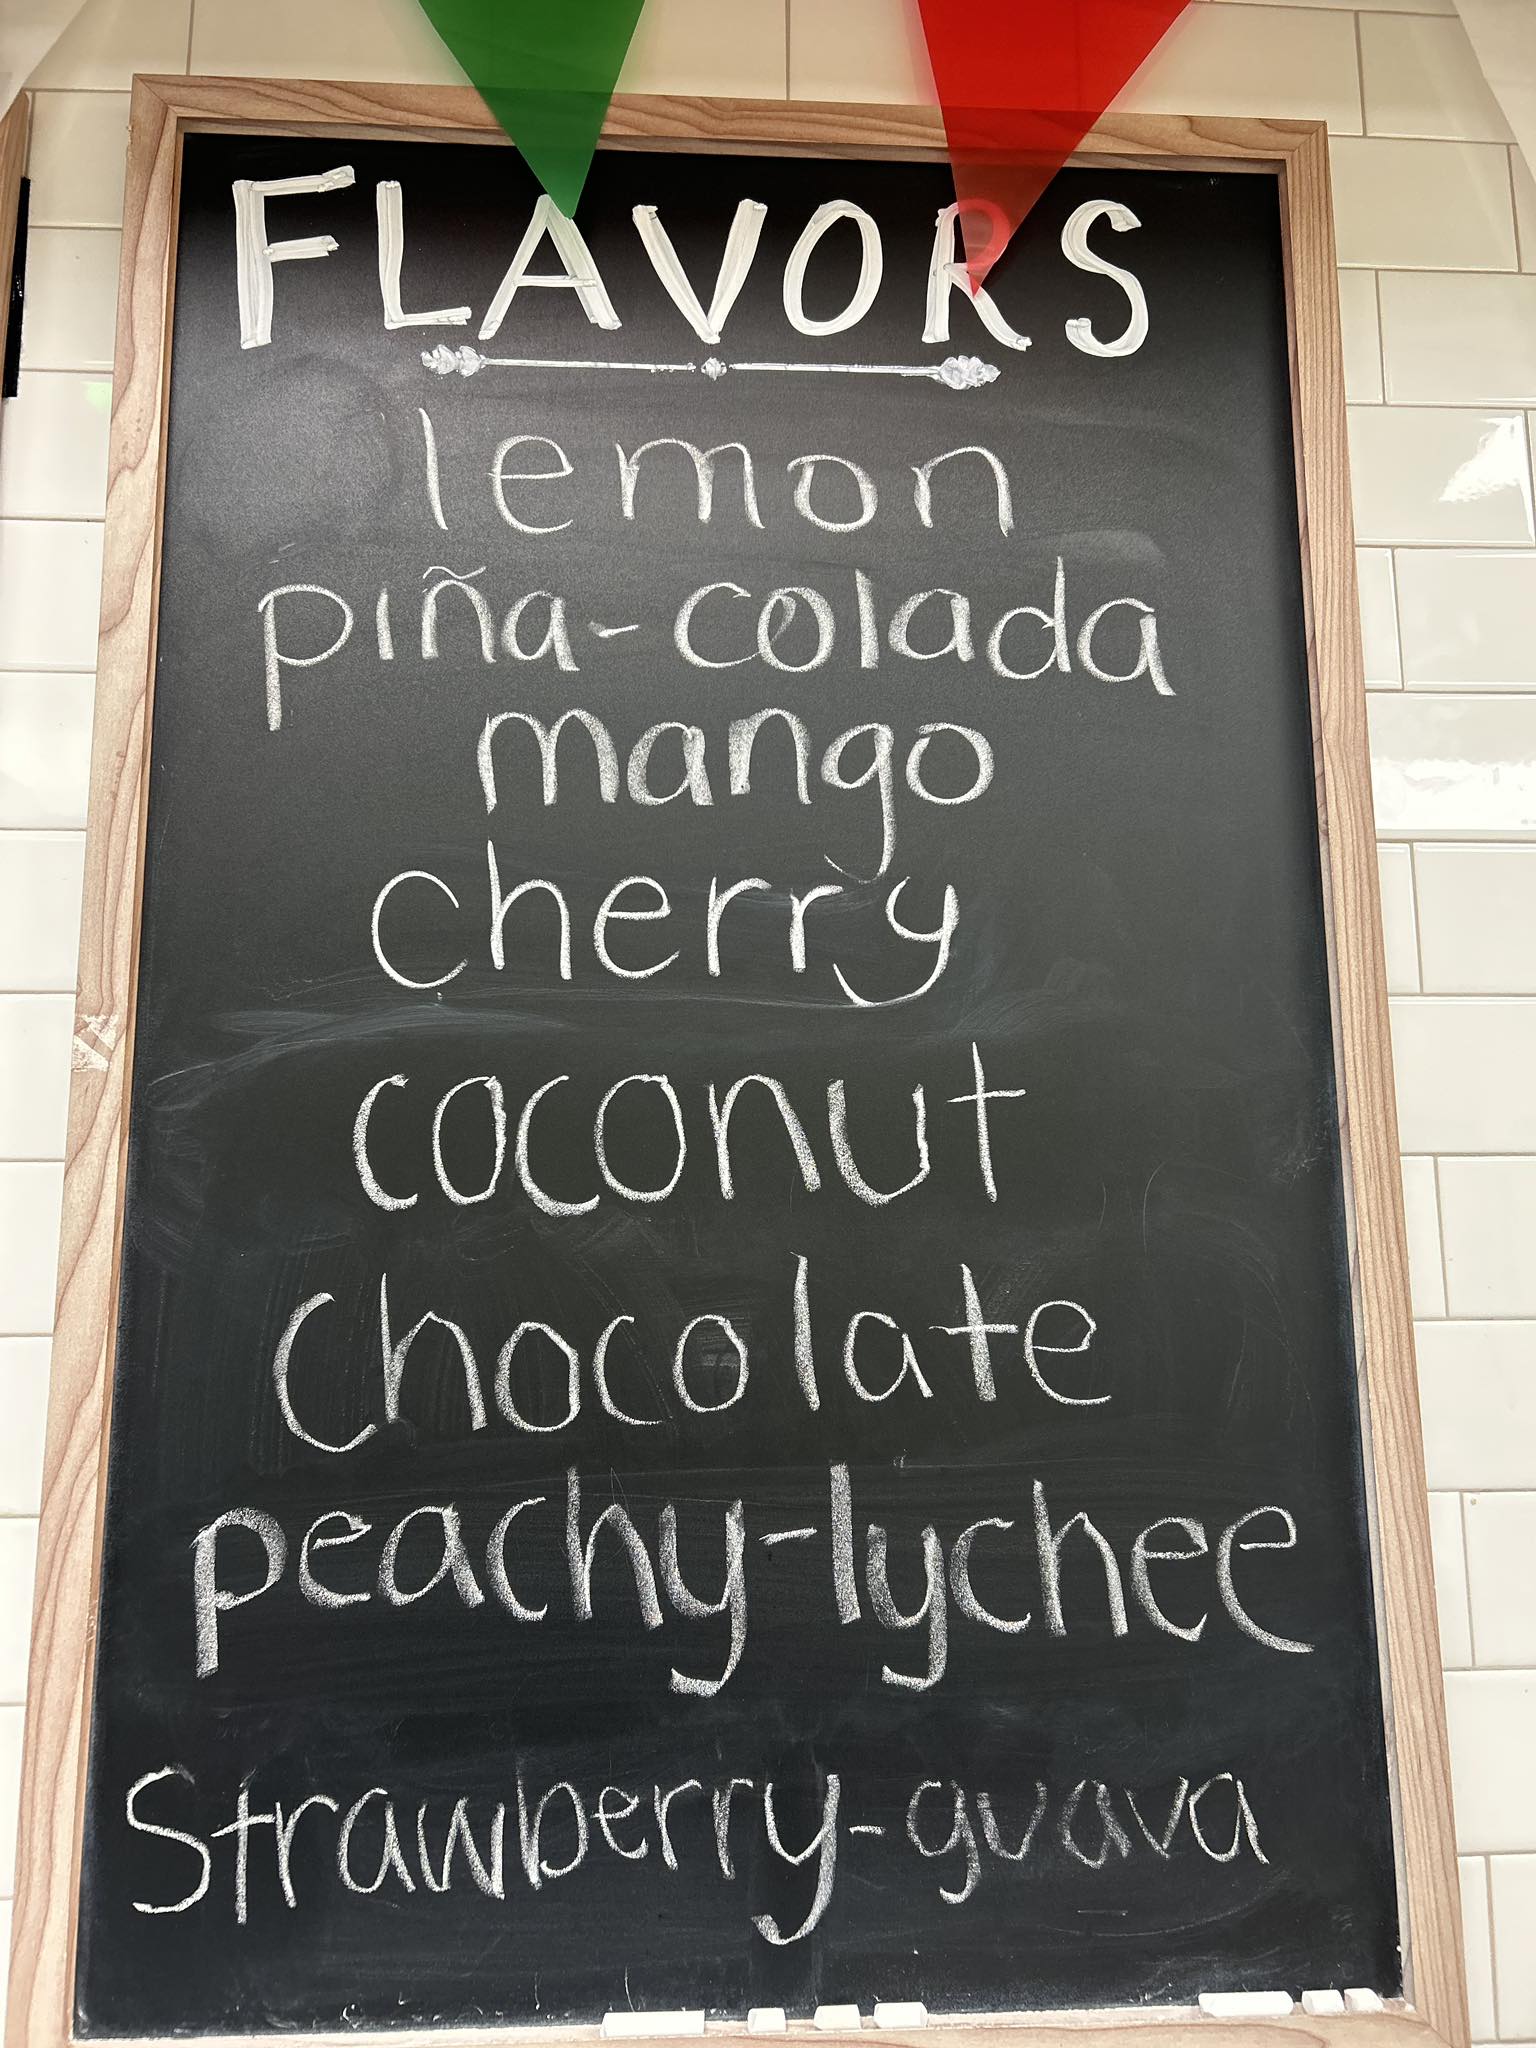 FLAVORS
lemon
piña-colada
mango
cherry
coconut
chocolate
peachy-lychee
Strawberry-guava